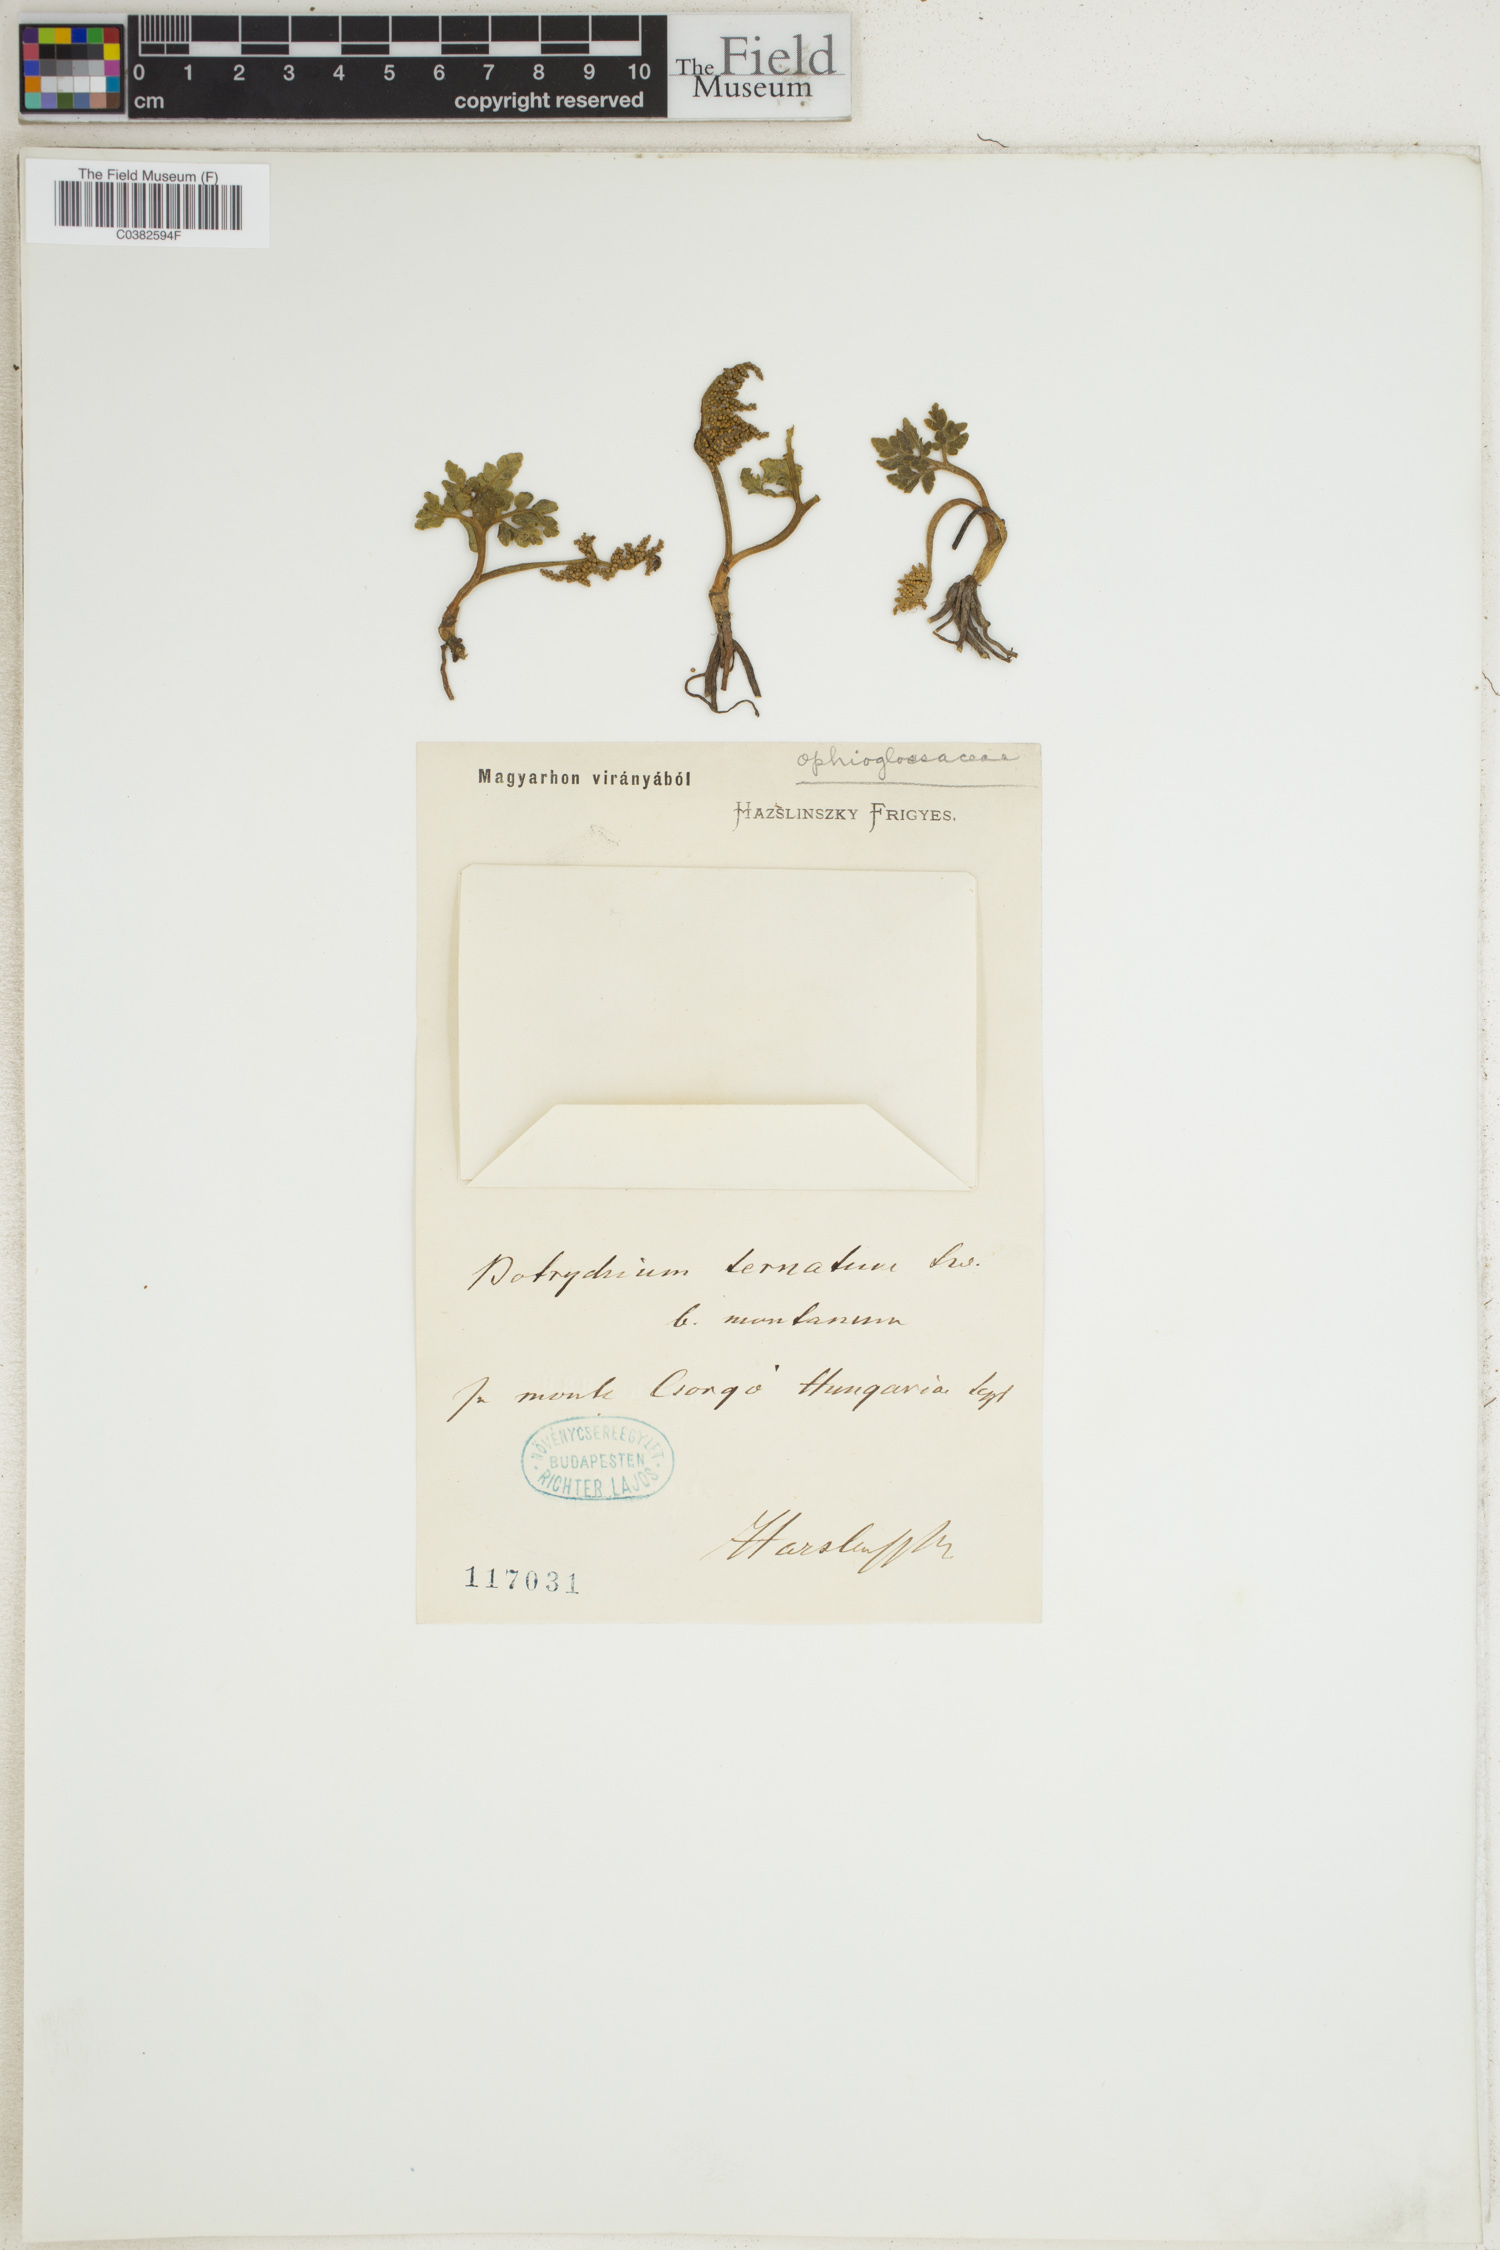 0 1 2 3 4 5 6 7 8 9 10
cm
copyright reserved
The Field
Museum
The Field Museum (F)
C0382594F
ophioglossaceae
Magyarhon virányából
HAZSLINSZKY FRIGYES.
Botrychium ternatum Sw.
b. montanum
In monte Csorgó Hungariae Sept
NÖVÉNYCSEREEGYLET
BUDAPESTEN
RICHTER LAJOS
Hazslinszky
117031